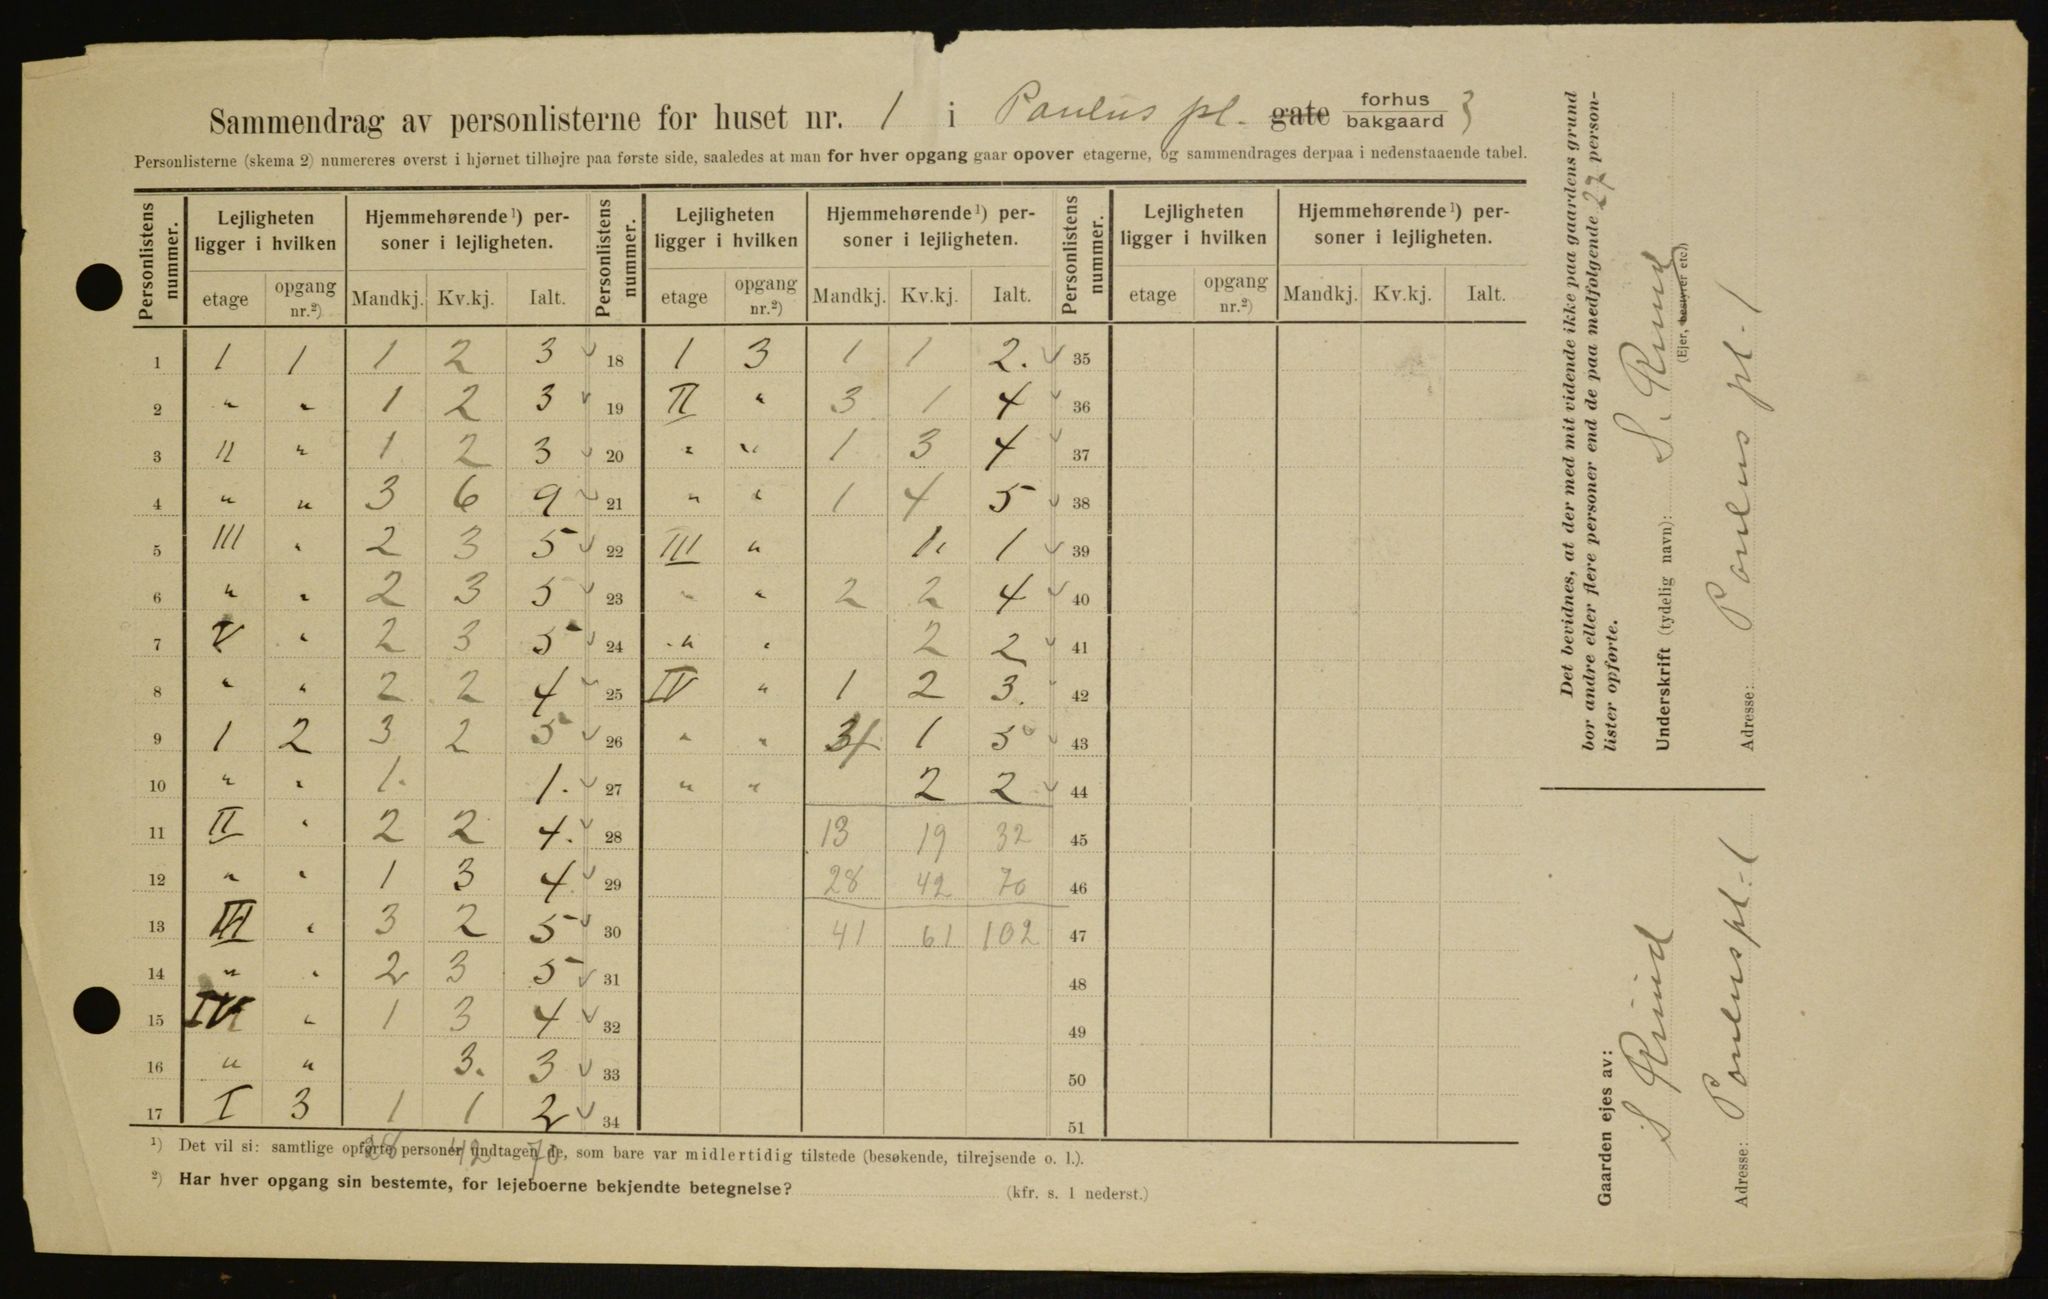 Sammendrag av personlisterne for huset nr. 1 i Paulus pl. gate forhus bakgaard 3
Personlisterne (skema 2) numereres øverst i hjørnet tilhøjre paa første side, saaledes at man for hver opgang gaar opover etagerne, og sammendrages derpaa i nedenstaaende tabel.
Personlistens nummer. Lejligheten ligger i hvilken Hjemmehørende¹) personer i lejligheten. Personlistens nummer. Lejligheten ligger i hvilken Hjemmehørende¹) personer i lejligheten. Personlistens nummer. Lejligheten ligger i hvilken Hjemmehørende¹) personer i lejligheten.
etage opgang nr.²) Mandkj. Kv.kj. Ialt. etage opgang nr.²) Mandkj. Kv.kj. Ialt. etage opgang nr.²) Mandkj. Kv.kj. Ialt.
1 1 1 1 2 3 ✓ 18 1 3 1 1 2. ✓ 35
2 " " 1 2 3 ✓ 19 II " 3 1 4 ✓ 36
3 II " 1 2 3 ✓ 20 " " 1 3 4 ✓ 37
4 " " 3 6 9 ✓ 21 " " 1 4 5 ✓ 38
5 III " 2 3 5 ✓ 22 III " 1 1 ✓ 39
6 " " 2 3 5 ✓ 23 " " 2 2 4 ✓ 40
7 V " 2 3 5 ✓ 24 " " 2 2 ✓ 41
8 " " 2 2 4 ✓ 25 IV " 1 2 3. ✓ 42
9 1 2 3 2 5 ✓ 26 " " 4 1 5 ✓ 43
10 " " 1. 1. ✓ 27 " " 2 2 ✓ 44
11 II " 2 2 4. ✓ 28 13 19 32 45
12 " " 1 3 4 ✓ 29 28 42 70 46
13 III " 3 2 5 ✓ 30 41 61 102 47
14 " " 2 3 5 ✓ 31 48
15 IV " 1 3 4 ✓ 32 49
16 " " 3. 3 ✓ 33 50
17 I 3 1 1 2 ✓ 34 51
28 42 70
¹) Det vil si: samtlige opførte personer undtagen de, som bare var midlertidig tilstede (besøkende, tilrejsende o. l.).
²) Har hver opgang sin bestemte, for lejeboerne bekjendte betegnelse? (kfr. s. 1 nederst.)
Det bevidnes, at der med mit vidende ikke paa gaardens grund
bor andre eller flere personer end de paa medfølgende 27 person-
lister opførte.
Underskrift (tydelig navn): S. Ruud
(Ejer, bestyrer etc.)
Adresse: Paulus pl. 1
Gaarden ejes av:
S Ruud
Adresse: Paulus pl. 1